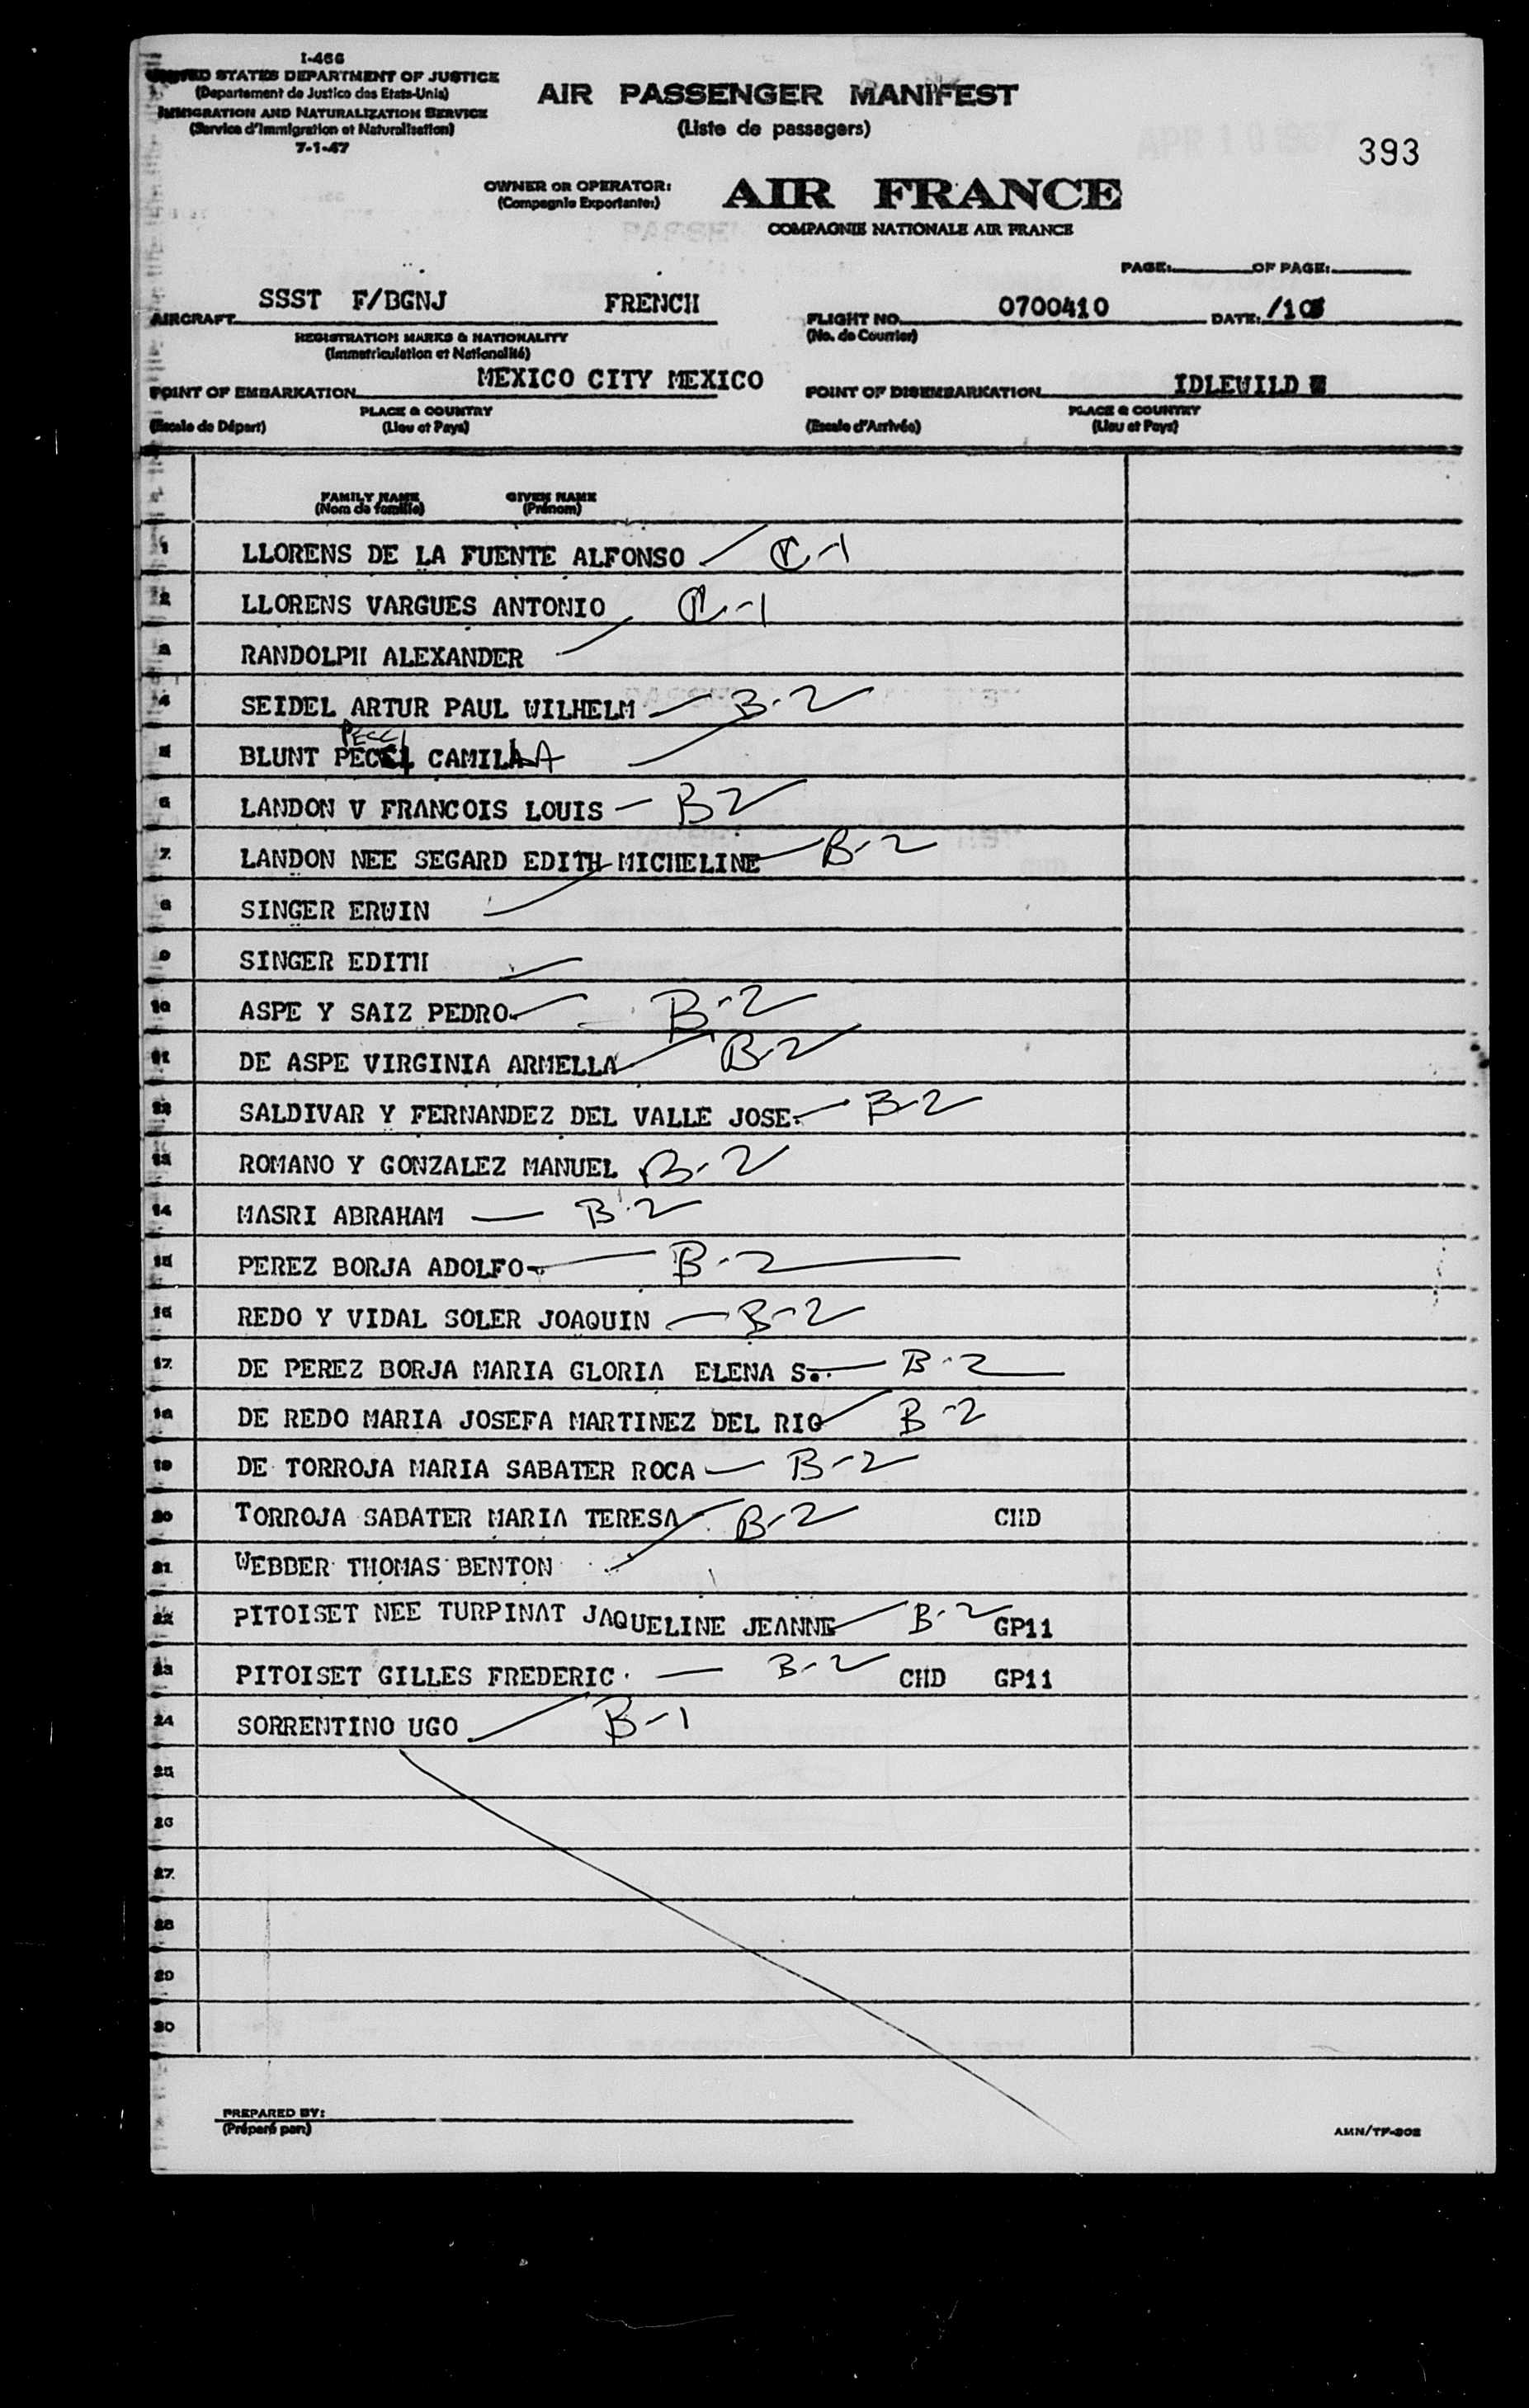 I-466
UNITED STATES DEPARTMENT OF JUSTICE
(Departement de Justice des Etats-Unis)
IMMIGRATION AND NATURALIZATION SERVICE
(Service d'Immigration et Naturalisation)
7-1-47
AIR PASSENGER MANIFEST
(Liste de passagers)
APR 10
393
OWNER OR OPERATOR: AIR FRANCE
(Compagnie Exportante:)
COMPAGNIE NATIONALE AIR FRANCE
PAGE: OF PAGE:
AIRCRAFT SSST F/BGNJ FRENCH
REGISTRATION MARKS & NATIONALITY
(Immatriculation et Nationalité)
FLIGHT NO. 0700410 DATE: /10
(No. de Courrier)
POINT OF EMBARKATION MEXICO CITY MEXICO
PLACE & COUNTRY
(Escale de Départ) (Lieu et Pays)
POINT OF DISEMBARKATION IDLEWILD
PLACE & COUNTRY
(Escale d'Arrivée) (Lieu et Pays)
FAMILY NAME GIVEN NAME
(Nom de famille) (Prénom)
1 LLORENS DE LA FUENTE ALFONSO C-1
2 LLORENS VARGUES ANTONIO C-1
3 RANDOLPH ALEXANDER
4 SEIDEL ARTUR PAUL WILHELM B-2
PECCI
5 BLUNT PECCI CAMILLA
6 LANDON V FRANCOIS LOUIS B2
7 LANDON NEE SEGARD EDITH MICHELINE B-2
8 SINGER ERWIN
9 SINGER EDITH
10 ASPE Y SAIZ PEDRO B-2
11 DE ASPE VIRGINIA ARMELLA B-2
12 SALDIVAR Y FERNANDEZ DEL VALLE JOSE. B-2
13 ROMANO Y GONZALEZ MANUEL B-2
14 MASRI ABRAHAM B-2
15 PEREZ BORJA ADOLFO B-2
16 REDO Y VIDAL SOLER JOAQUIN B-2
17 DE PEREZ BORJA MARIA GLORIA ELENA S. B-2
18 DE REDO MARIA JOSEFA MARTINEZ DEL RIO B-2
19 DE TORROJA MARIA SABATER ROCA B-2
20 TORROJA SABATER MARIA TERESA B-2 CHD
21 WEBBER THOMAS BENTON
22 PITOISET NEE TURPINAT JAQUELINE JEANNE B-2 GP11
23 PITOISET GILLES FREDERIC B-2 CHD GP11
24 SORRENTINO UGO B-1
25
26
27
28
29
30
PREPARED BY:
(Préparé par:)
AMN/TF-302